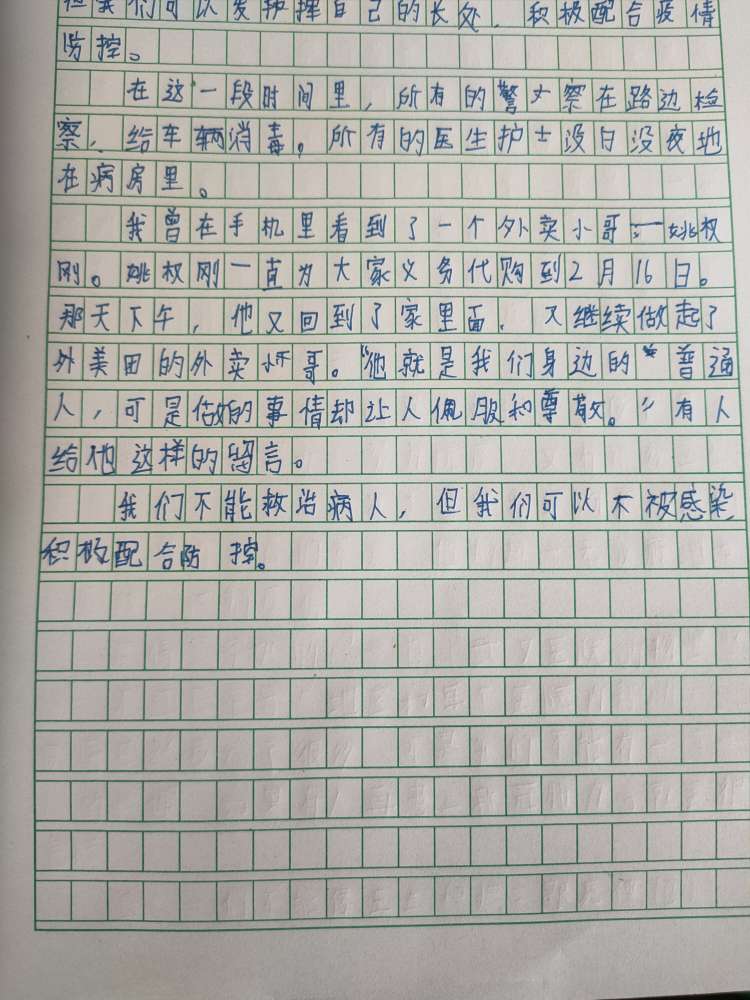 但我们可以发挥自己的长处，积极配合疫情
防控。
在这一段时间里，所有的警察在路边检
察，给车辆消毒。所有的医生护士没日没夜地
在病房里。
我曾在手机里看到了一个外卖小哥：姚权
刚。姚权刚一直为大家义务代购到2月16日。
那天下午，他又回到了家里面，又继续做起了
外美田的外卖小哥。“他就是我们身边的“普通
人，可是做的事情却让人佩服和尊敬。”有人
给他这样的留言。
我们不能救治病人，但我们可以不被感染
积极配合防控。